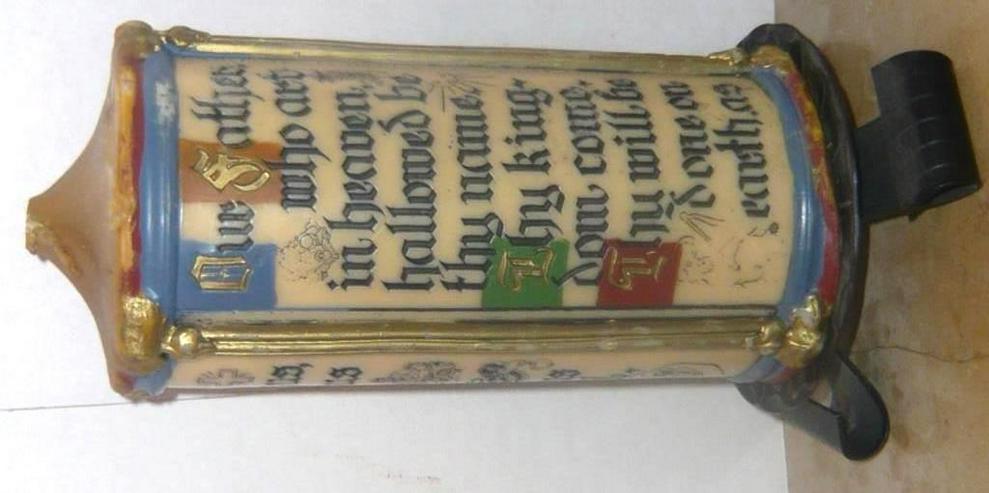 Our Father
who art
in heaven,
hallowed be
thy name.
Thy king-
dom come.
Thy will be
done on
earth, as